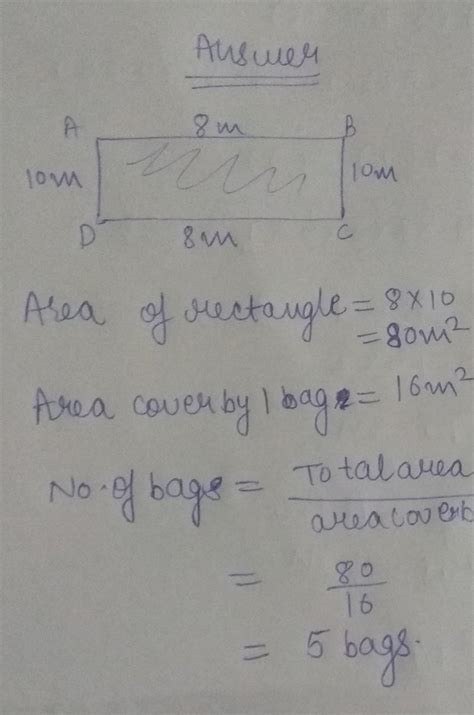 Answer
A 8m B
10m 10m
D 8m C
Area of rectangle = 8×10
= 80m²
Area cover by 1 bag = 16m²
No. of bags = Total area
area coverb
= 80
16
= 5 bags.